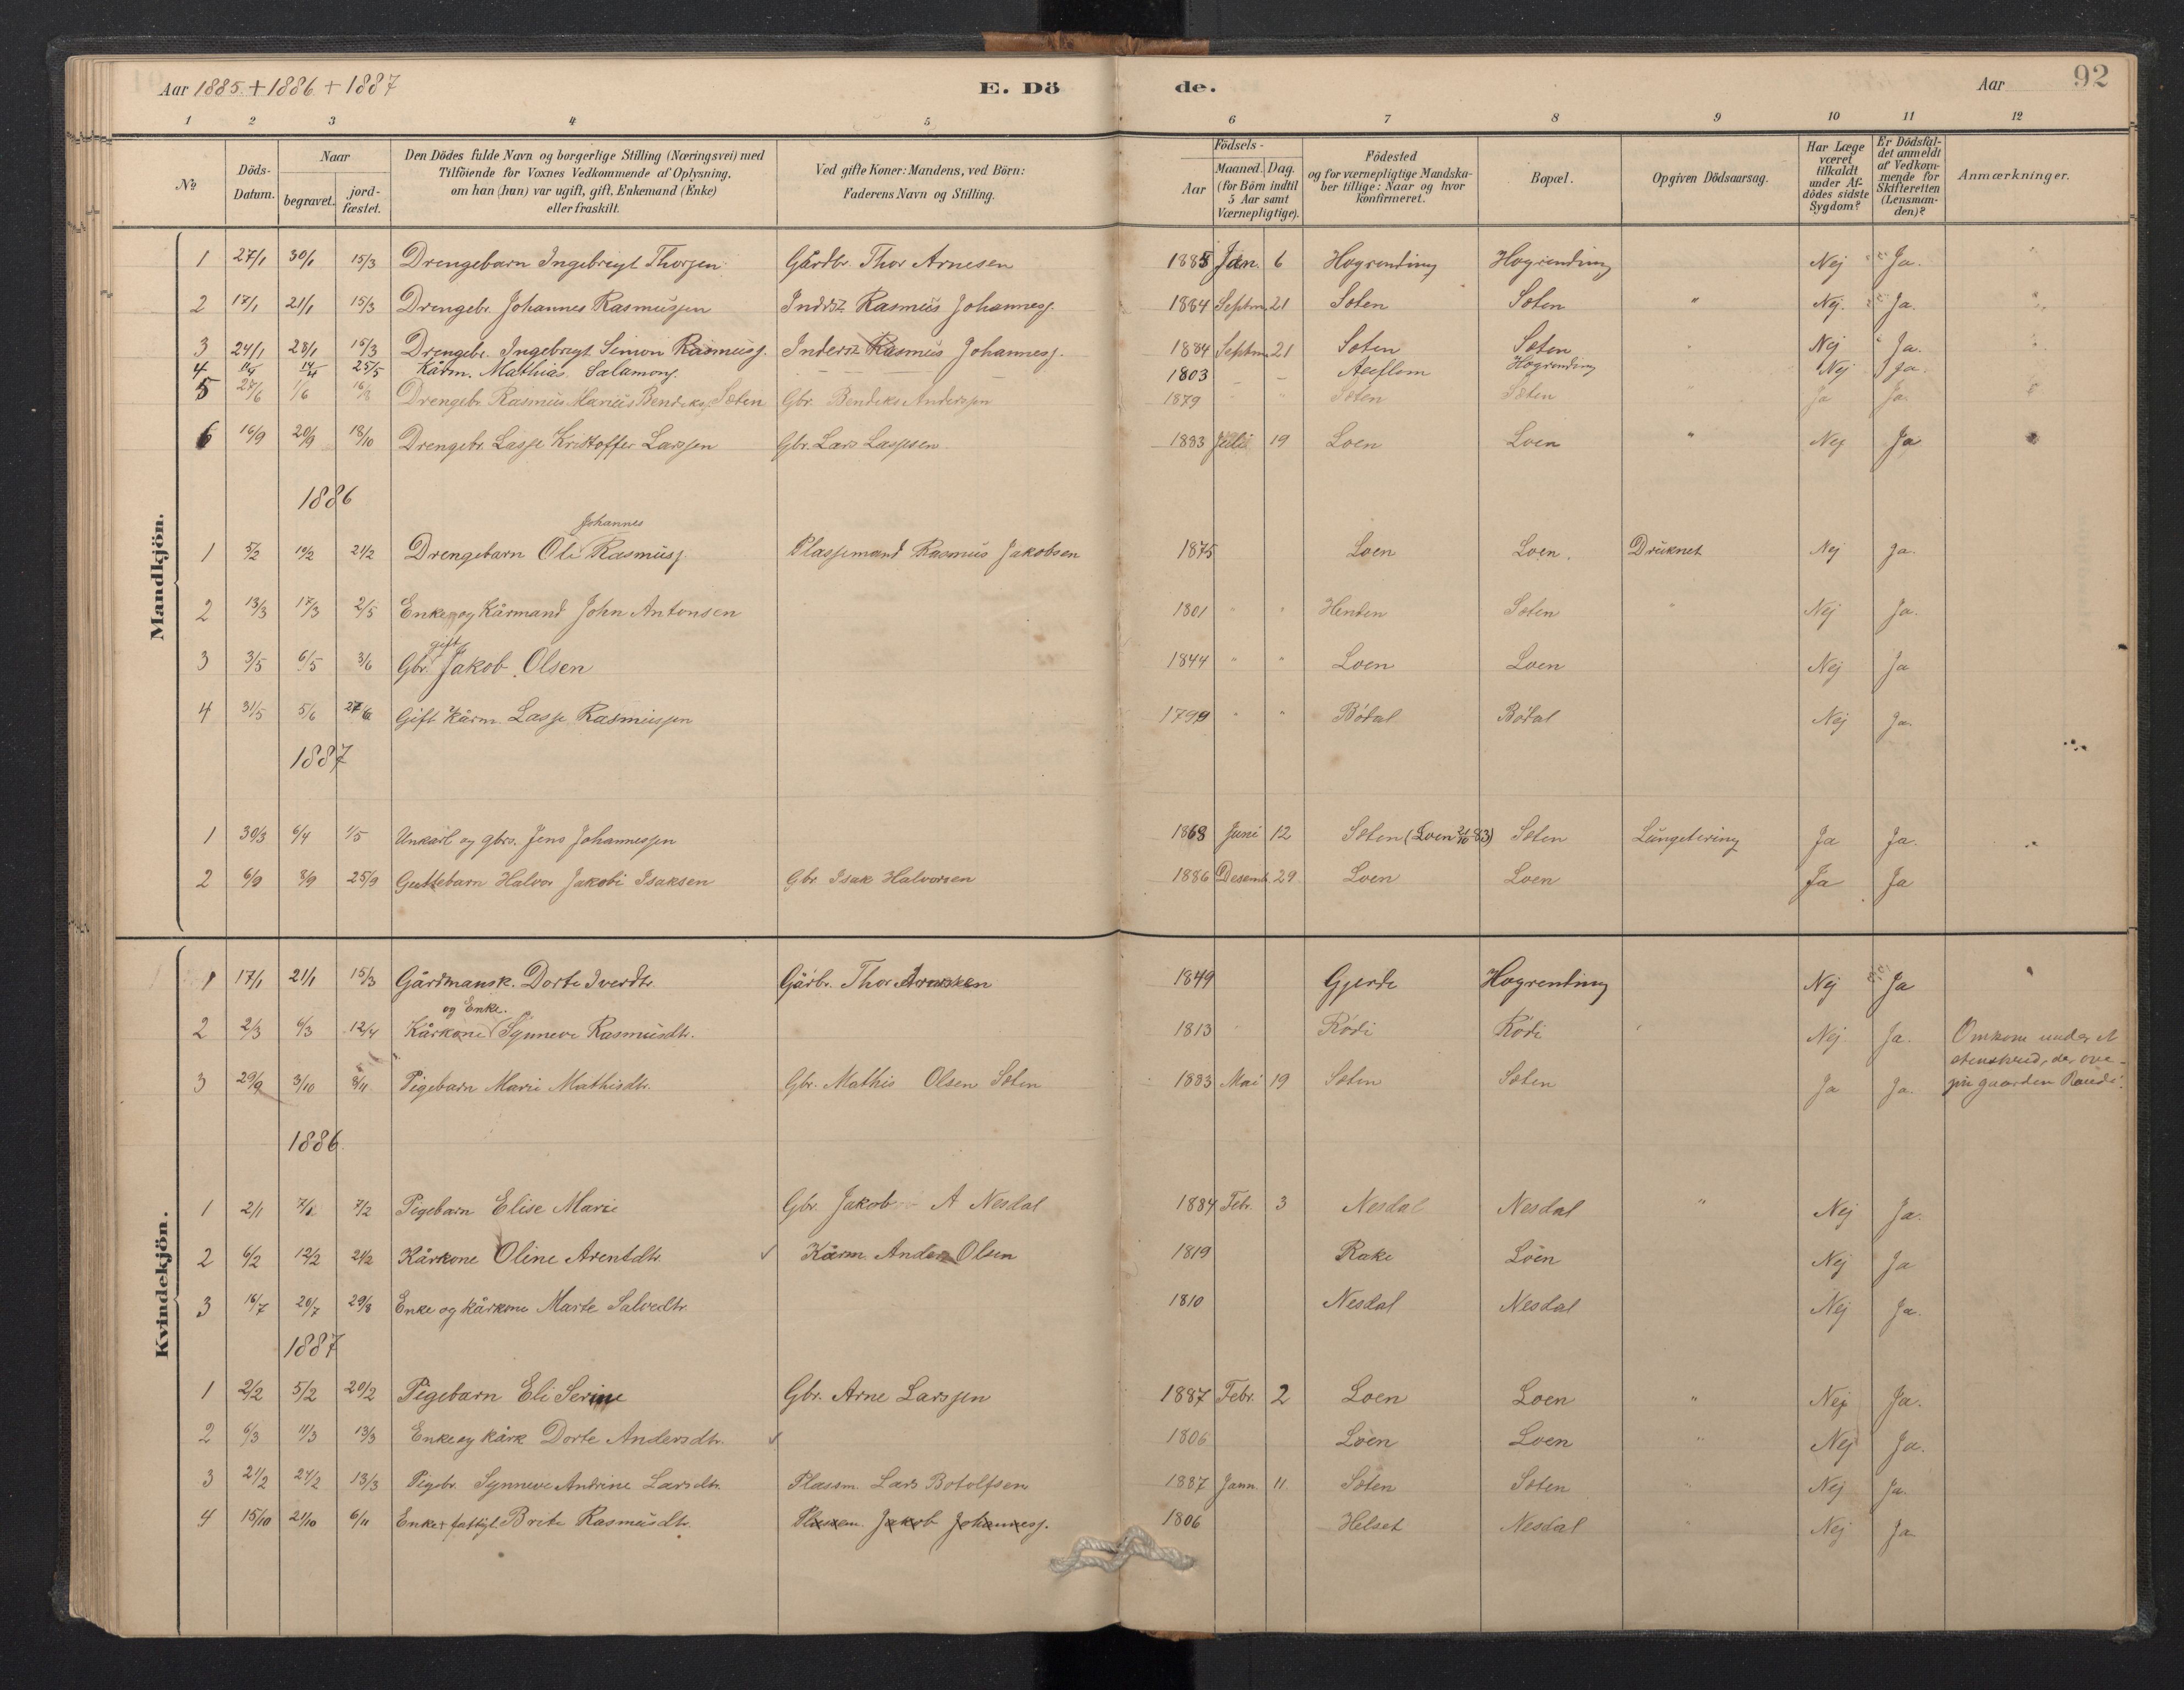 Aar 1885 + 1886 + 1887 E. Dö de. Aar 92
1 2 3 4 5 6 7 8 9 10 11 12
No
Döds-Datum.
Naar
begravet.
jordfæstet.
Den Dödes fulde Navn og borgerlige Stilling (Næringsvei) med
Tilföiende for Voxnes Vedkommende af Oplysning,
om han (hun) var ugift, gift, Enkemand (Enke)
eller fraskilt.
Ved gifte Koner: Mandens, ved Börn:
Faderens Navn og Stilling.
Födsels-
Aar
Maaned. Dag.
(for Börn indtil
5 Aar samt
Værnepligtige).
Födested
og for værnepligtige Mandskaber tillige: Naar og hvor
konfirmeret.
Bopæl.
Opgiven Dödsaarsag.
Har Læge
været
tilkaldt
under Afdödes sidste
Sygdom?
Er Dödsfaldet anmeldt
af Vedkommende for
Skifteretten
(Lensmanden)?
Anmærkninger.
Mandkjön.
1 27/1 30/1 15/3 Drengebarn Ingebregt Thorsen Gårdbr. Thor Arnesen 1885 Jan. 6 Hogrending Hogrending Nej Ja.
2 17/1 21/1 15/3 Drengebr. Johannes Rasmussen Inderst Rasmus Johanness. 1884 Septm. 21 Soten Soten " Nej. Ja.
3 24/1 28/1 15/3 Drengebr. Ingebregt Simon Rasmuss. Inderst Rasmus Johanness. 1884 Septm. 21 Soten Soten Nej Ja.
4 25/5 Kårm. Mathias Salamons. 1803 Hogrending Nej Ja.
5 27/6 1/6 Drengebr. Rasmus Marius Bendiks. Soten Gbr. Bendiks Anderssen 1879 Soten Soten Ja Ja.
6 16/9 20/9 18/10 Drengebr. Lasse Kristoffer Larssen Gbr. Lars Lassesen 1883 Juli 19 Loen Loen " Nej Ja
1886
1 5/2 10/2 21/2 Drengebarn Ole Johannes Rasmuss. Plassemand Rasmus Jakobsen 1875 Loen Loen. Druknet Nej Ja.
2 13/3 17/3 2/5 Enkem. og Kårmand John Antonsen 1801 " " Henden Soten Nej Ja.
3 3/5 6/5 3/6 Gbr. gift Jakob Olsen 1844 " " Loen Loen Nej Ja
4 31/5 5/6 27/6 Gift Kårm. Lasse Rasmussen 1799 " " Bödal Bödal Nej Ja.
1887
1 30/3 6/4 1/5 Unkarl og gbrs. Jens Johannessen 1868 Juni 12 Soten (Loen 21/10 83) Soten Lungetæring Ja Ja.
2 6/9 8/9 25/9 Guttebarn Halvor Jakobi Isaksen Gbr. Isak Halvorsen 1886 Desemb. 29 Loen Loen Ja Ja
Kvindekjön.
1 17/1 21/1 15/3 Gårdmansk. Dorte Iverdtr. Gårbr. Thor Arnesen 1849 Gjerde Hogrending Nej Ja
2 2/3 6/3 12/4 Kårkone og Enke. Synneve Rasmusdtr. 1813 Rödi Rödi Nej Ja. Omkom under et
stenskred, der ove-
3 29/9 3/10 8/11 Pigebarn Marie Mathisdtr. Gbr. Mathis Olsen Soten 1883 Mai 19 Soten Soten Ja Ja. gaarden Raudi.
1886.
1 2/1 7/1 7/2 Pigebarn Elise Marie Gbr. Jakob A Nesdal 1884 Febr. 3 Nesdal Nesdal " Nej Ja.
2 6/2 12/2 21/2 Kårkone Oline Arentdtr. Kårm Anders Olsen 1819 Rake Loen Nej Ja
3 16/7 20/7 29/8 Enke og kårkone Marte Salvedtr. 1810 Nesdal Nesdal Nej Ja.
1887
1 2/2 5/2 20/2 Pigebarn Eli Serine Gbr. Arne Larssen 1887 Febr. 2 Loen Loen " Nej Ja.
2 6/3 11/3 13/3 Enke og kårk Dorte Andersdtr. 1806 Loen Loen " Nej Ja.
3 21/2 27/2 13/3 Pigebr. Synneve Andrine Larsdtr. Plassm. Lars Botolfsen 1887 Jann. 11 Soten Soten Nej Ja.
4 15/10 21/10 6/11 Enke + fattigl. Brite Rasmusdtr. Plassem. Jakob Johanness. 1806 Helset Nesdal Nej Ja